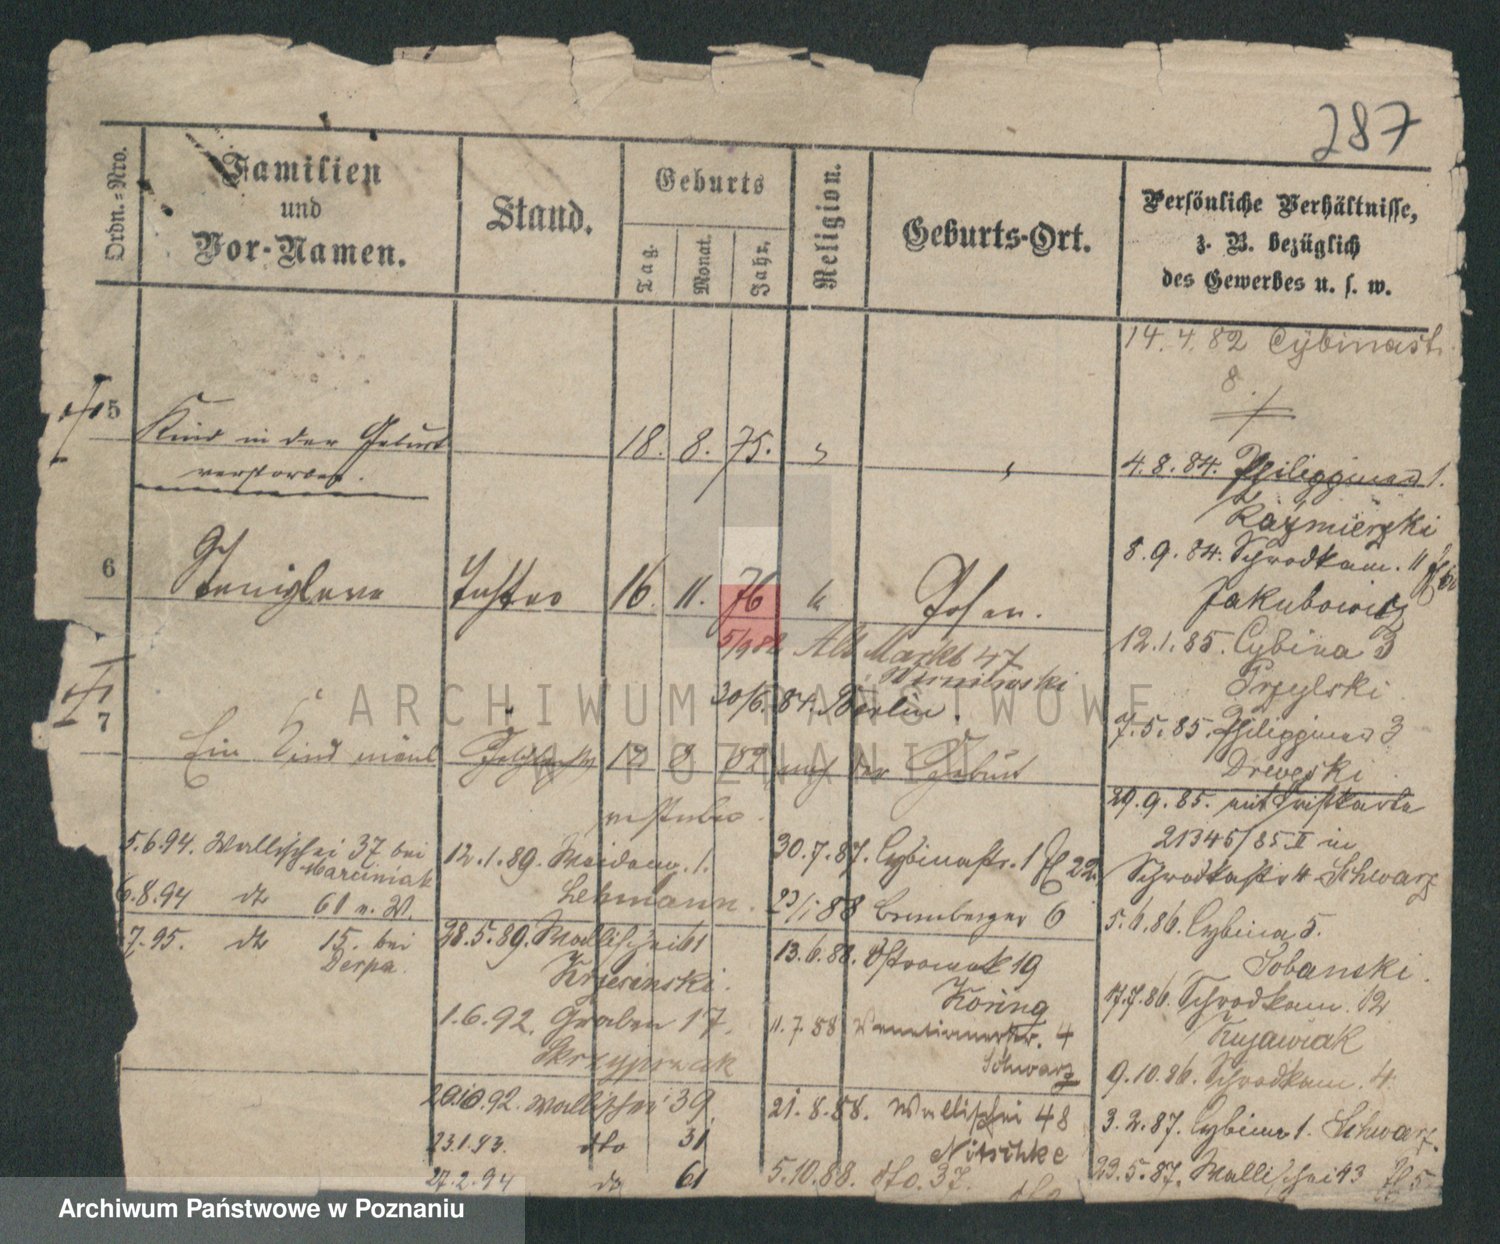 287
Ordn.-Nro.
Familien
und
Vor-Namen.
Stand.
Geburts
Tag.
Monat.
Jahr.
Religion.
Geburts-Ort.
Persönliche Verhältnisse,
z. B. bezüglich
des Gewerbes u. s. w.
14. 4. 82 Cybinastr.
8
5
Kind in der Geburt
18. 8. 75.
verstorben.
4. 8. 84.
1.
Kaźmierski
6
Stanislava
Tochter
16. 11. 76
Posen.
8. 9. 84. Schrodkam. 11
Jakubowicz
5/9 82 Alt Markt 47
20/6. 84. Berlin.
12. 1. 85. Cybina 3
Przylski
7
Ein Kind männl. Geschlechts 12 9 82 nach der Geburt
verstorben.
7. 5. 85.
3
Dreweski
29. 9. 85. mit
21345/85. II in
4 Schwarz
5. 6. 86. Cybina 5.
Sobanski.
17. 7. 86. Schrodkam. 12
Kujawiak
9. 10. 86. Schrodkam. 4.
3. 2. 87. Cybina 1. Schwarz.
23. 5. 87. Wallischei 43
5. 6. 94. Wallischei 37 bei
Marciniak
6. 8. 94 dto 61
7. 95. dto 15. bei
Derpa.
12. 1. 89. 1.
Lehmann.
28. 5. 89. Wallischei 61
Krzesinski.
1. 6. 92. Graben 17.
20.10. 92. Wallischei 39.
23.1.93. dto 31
27. 2. 94 do 61
30. 7. 87. Cybinastr. 1
23/1 88 Bromberger 6
13. 6. 88. Ostrowek 19
Köring
11. 7. 88 Venetianerstr. 4
Schwarz
21. 8. 88. Wallischei 48
Nitschke
5. 10. 88. dto. 37.
ARCHIWUM PAŃSTWOWE
W POZNANIU
Archiwum Państwowe w Poznaniu